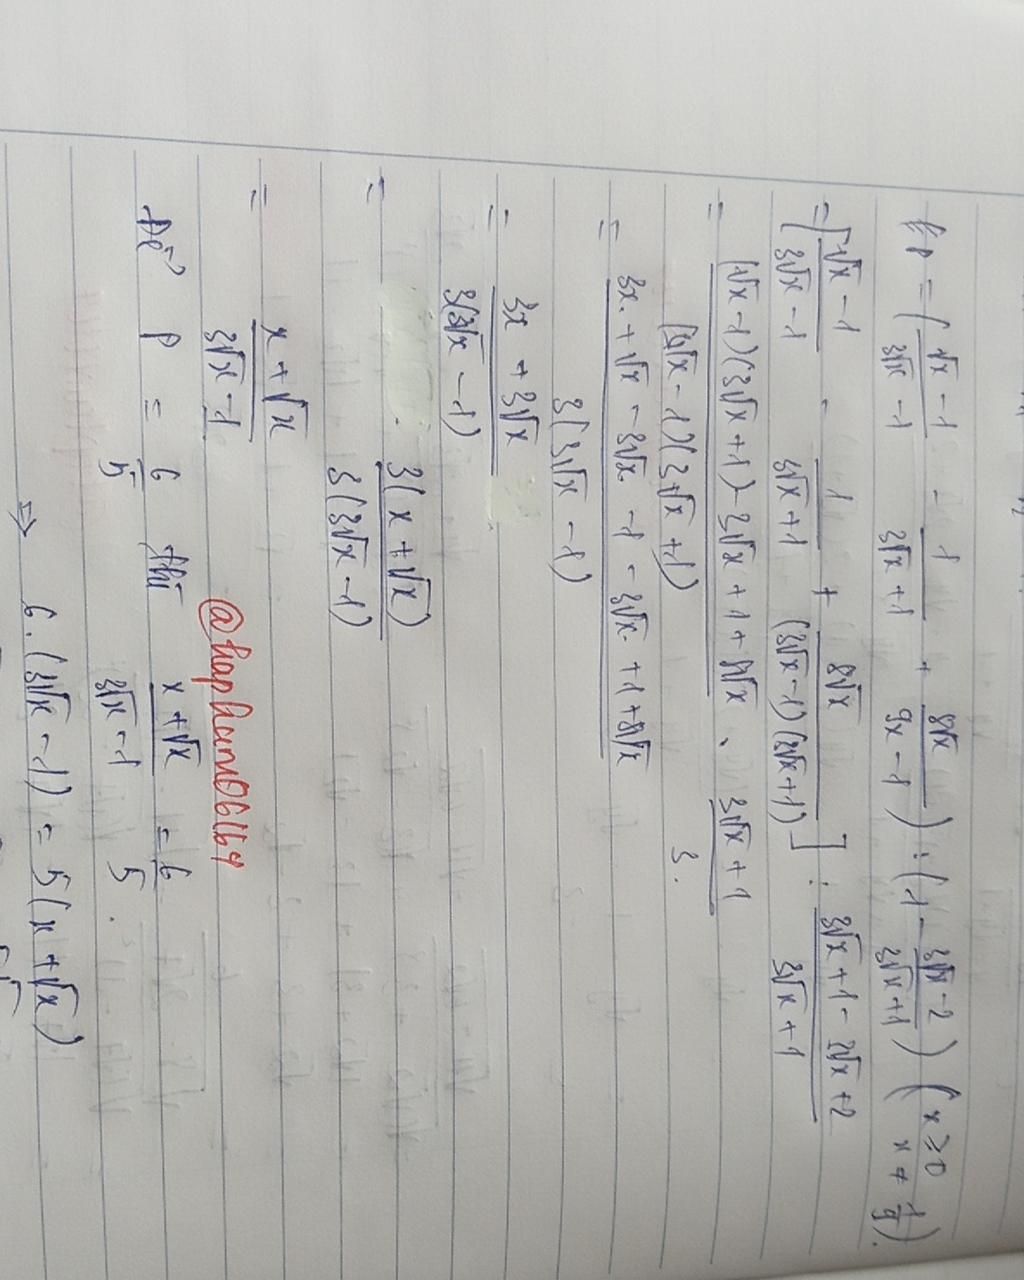 b, P = ( (√x - 1)/(3√x - 1) - 1/(3√x + 1) + 8√x/(9x - 1) ) : ( 1 - (3√x - 2)/(3√x + 1) ) ( x ≥ 0 x ≠ 1/9 ).
= [ (√x - 1)/(3√x - 1) - 1/(3√x + 1) + 8√x/((3√x - 1)(3√x + 1)) ] : (3√x + 1 - 3√x + 2)/(3√x + 1)
= ((√x - 1)(3√x + 1) - 3√x + 1 + 8√x)/((3√x - 1)(3√x + 1)) . (3√x + 1)/3 .
= (3x + √x - 3√x - 1 - 3√x + 1 + 8√x)/(3(3√x - 1))
= (3x + 3√x)/(3(3√x - 1))
= (3(x + √x))/(3(3√x - 1))
= (x + √x)/(3√x - 1)
@hapham06164
Để P = 6/5 thì (x + √x)/(3√x - 1) = 6/5 .
⇒ 6.(3√x - 1) = 5(x + √x)